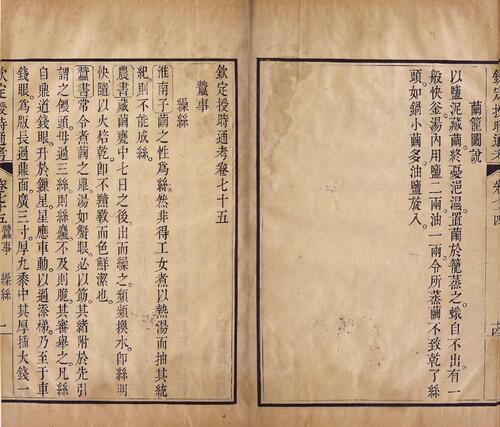 繭籠圖說
以鹽泥藏繭終憂浥濕。置繭於籠蒸之。蛾自不出。有一
般快釜湯內用鹽二兩。油一兩。令所蒸繭不致乾了絲
頭如鍋小繭多油鹽旋入。
欽定授時通考卷七十五
蠶事
繅絲
淮南子繭之性為絲。然非得工女煮以熱湯而抽其統
紀。則不能成絲。
農書藏繭甕中七日之後。出而繰之。頻頻換水。即絲明
快。隨以火焙乾。即不黯斁而色鮮潔也。
蠶書常令煮繭之鼎。湯如蟹眼。必以筯。其緒附於先引
謂之餧頭。毋過三絲。則絲麤。不及則脆。其審舉之。凡絲
自鼎道錢眼。升於鏁星。星應車動。以過添梯。乃至于車
錢眼為版。長過鼎面。廣三寸。厚九黍。中其厚插大錢一
欽定授時通考 卷七十五 蠶事 繅絲 一